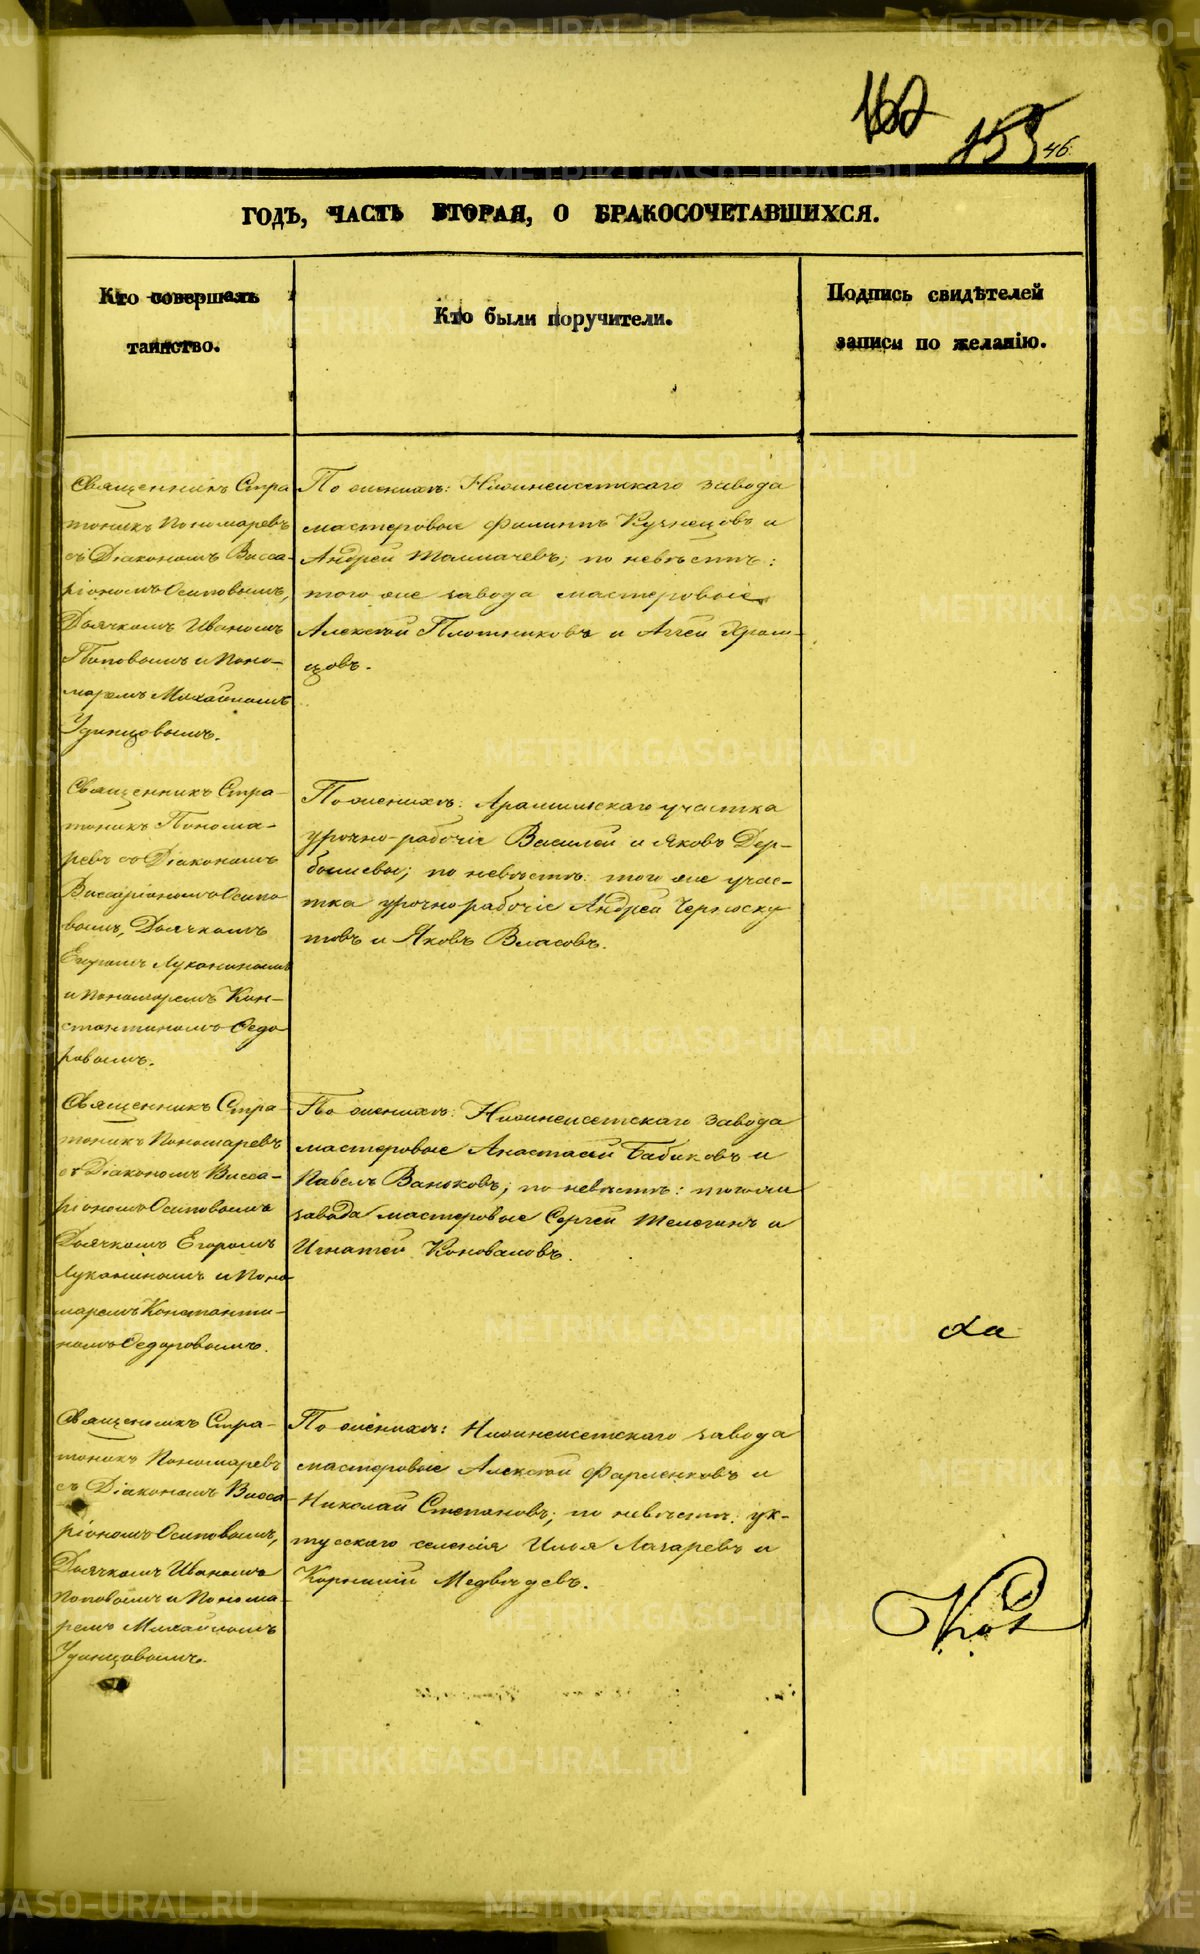 160
155
46.
ГОДЪ, ЧАСТЬ ВТОРАЯ, О БРАКОСОЧЕТАВШИХСЯ.
Кто совершалъ
таинство.
Кто были поручители.
Подпись свидѣтелей
записи по желанію.
Священникъ Стра
тоникъ Пономаревъ
съ Діакономъ Висса-
ріономъ Осиповымъ,
Дьячкомъ Иваномъ
Поповымъ и Поно-
маремъ Михайломъ
Удинцовымъ.
По женихѣ: Нижнеисетскаго завода
мастеровые Филиппъ Кузнецовъ и
Андрей Толмачевъ; по невѣстѣ:
того же завода мастеровые
Алексѣй Плотниковъ и Аггей Храм-
цовъ.
Священникъ Стра-
тоникъ Понома-
ревъ съ Діакономъ
Виссаріономъ Осипо
вымъ, Дьячкомъ
Егоромъ Луканинымъ
и Пономаремъ Кон-
стантиномъ Ѳедо
ровымъ.
По женихѣ: Арамильскаго участка
урочно-рабочіе Василей и Яковъ Дер-
бышевы; по невѣстѣ: того же учас-
тка урочнорабочіе Андрей Черноску
товъ и Яковъ Власовъ.
Священникъ Стра-
тоникъ Пономаревъ
съ Діакономъ Висса-
ріономъ Осиповымъ
Дьячкомъ Егоромъ
Луканинымъ и Поно
маремъ Константи-
номъ Ѳедоровымъ.
По женихѣ: Нижнеисетскаго завода
мастеровые Анастасій Бабиковъ и
Павелъ Ваньковъ; по невѣстѣ: тогоже
завода мастеровые Сергей Телегинъ и
Игнатей Коноваловъ.
Священникъ Стра-
тоникъ Пономаревъ
съ Діакономъ Висса
ріономъ Осиповымъ,
Дьячкомъ Иваномъ
Поповымъ и Понома-
ремъ Михайломъ
Удинцовымъ.
По женихѣ: Нижнеисетскаго завода
мастеровые Алексѣй Фарленковъ и
Николай Степановъ; по невѣстѣ: Ук-
тусскаго селенія Илья Лазаревъ и
Корнилій Медвѣдевъ.
METRIKI.GASO-URAL.RU